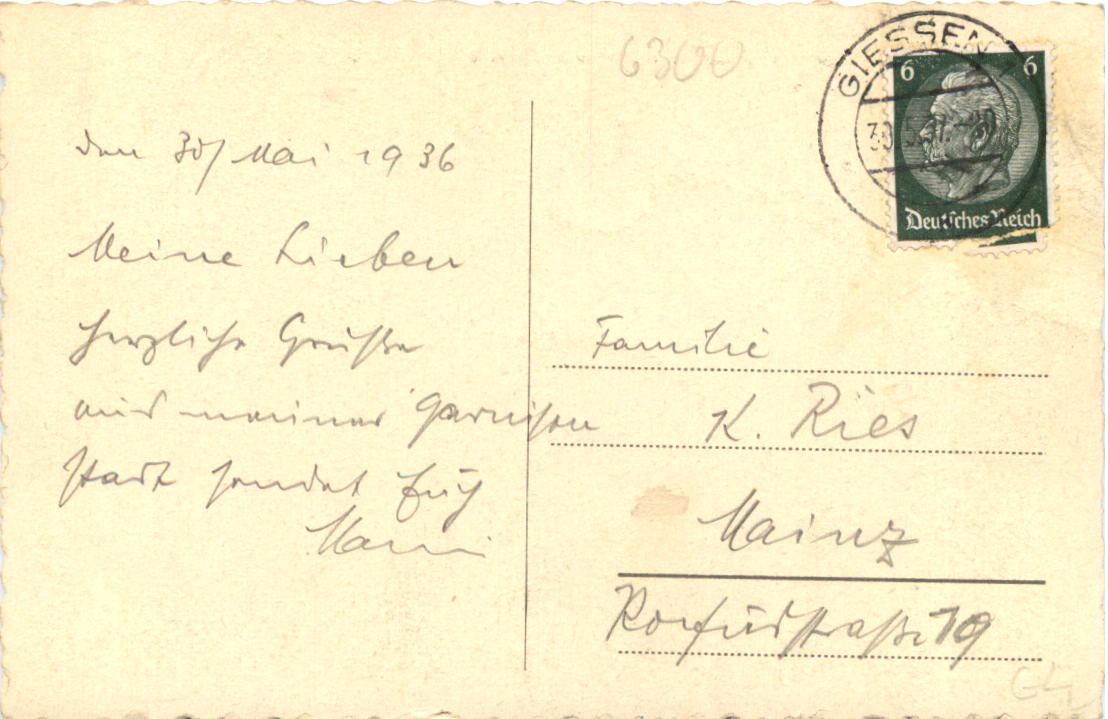 6300
GIESSEN
30.5.37.-20
6 6
Deutsches Reich
den 30/ Mai 1936
Meine Lieben
herzliche Grüße
aus meiner Garnison
stadt sendet Euch
Familie
K. Ries
Mainz
19